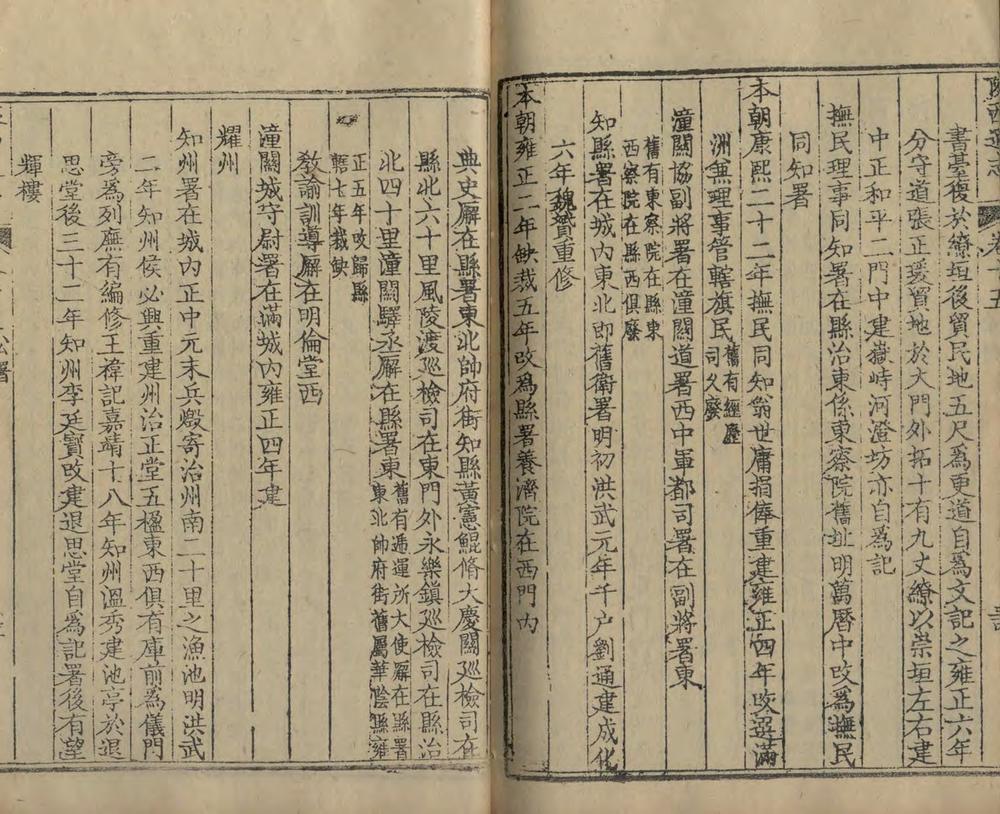 陝西通志 卷十五
書基復於繚垣後買民地五尺爲更道自爲文記之雍正六年
分守道張正瑗買地於大門外拓十有九丈繚以崇垣左右建
中正和平二門中建嶽峙河澄坊亦自爲記
撫民理事同知署在縣治東係東察院舊址明萬曆中改爲撫民
同知署
本朝康熙二十二年撫民同知翁世庸捐俸重建雍正四年改選滿
洲兼理事管轄旗民舊有經歷
司久廢
潼關協副將署在潼關道署西中軍都司署在副將署東
舊有東察院在縣東
西察院在縣西俱廢
知縣署在城內東北即舊衛署明初洪武元年千户劉通建成化
六年魏贇重修
本朝雍正二年缺裁五年改爲縣署養濟院在西門內
典史廨在縣署東北帥府街知縣黃憲鯤脩大慶關廵檢司在
縣北六十里風陵渡廵檢司在東門外永樂鎮廵檢司在縣治
北四十里潼關驛丞廨在縣署東舊有遞運所大使廨在縣署
東北帥府街舊屬華陰縣雍
正五年改歸縣
轄七年裁缺
敎諭訓導廨在明倫堂西
潼關城守尉署在滿城內雍正四年建
耀州
知州署在城內正中元末兵燬寄治州南二十里之漁池明洪武
二年知州侯必興重建州治正堂五楹東西俱有庫前爲儀門
旁爲列廡有編修王禕記嘉靖十八年知州溫秀建池亭於退
思堂後三十二年知州李廷寶改建退思堂自爲記署後有望
輝樓